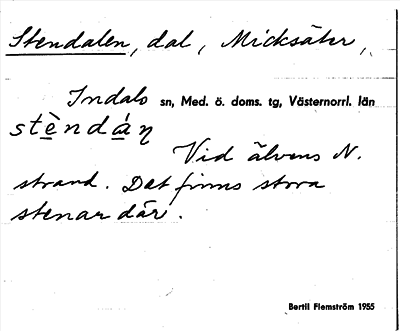 Stendalen, dal, Micksäter,
Indals sn, Med. ö. doms. tg, Västernorrl. län
stèndáṇ
Vid älvens N.
strand. Det finns stora
stenar där.
Bertil Flemström 1955